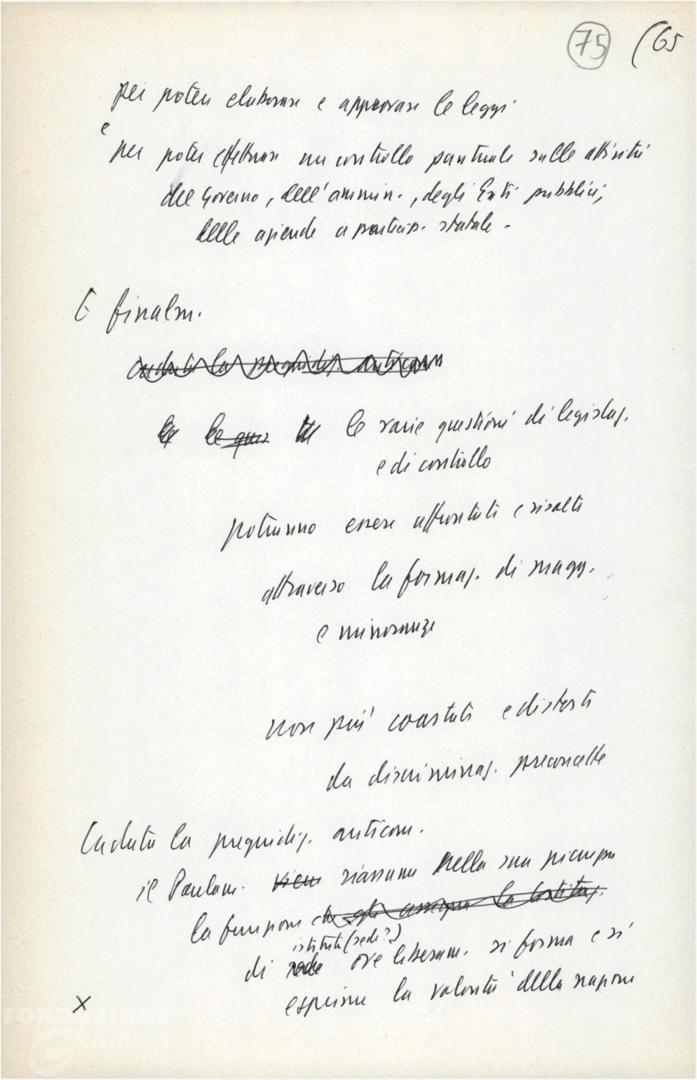 75 (65
per poter elaborare e approvare le leggi
e
per poter effettuare un controllo puntuale sulle attività
del Governo, dell'ammin., degli Enti pubblici,
delle aziende a partecip. statale.
E finalm.
caduta la pregiudiz. anticom
le le ques le varie questioni di legislaz.
e di controllo
potranno essere affrontati e risolti
attraverso la formaz. di magg.
e minoranze
non più coartati e distorti
da discriminaz. preconcette
Caduta la pregiudiz. anticom.
il Parlam. viene riassume nella sua pienezza
la funzione che gli assegna la Costituz.
istituto (sede?)
di sede ove liberam. si forma e si
esprime la volontà della nazione
x